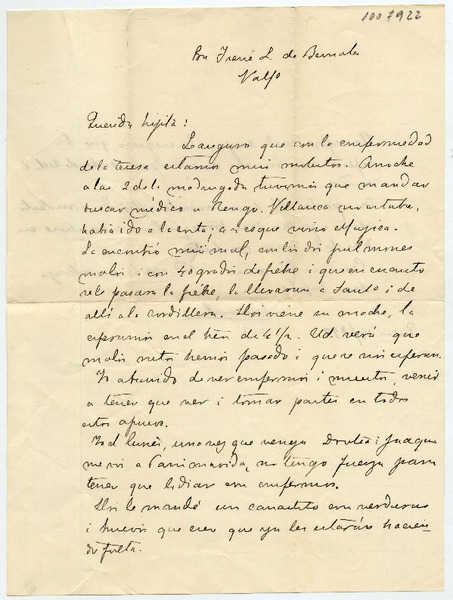 1007922
Sra Irene L. de Bernales
Valpo
Querida hijita:
Le aseguro que con la enfermedad
de la Teresa estamos mui molestos. Anoche
a las 2 de l. madrugada tuvimos que mandar
buscar médico a Rengo. Villauca no estaba,
había ido a la costa; así es que vino Mujica.
La encontró mui mal, con los dos pulmones
malos i con 40 grados de fiebre i que en cuanto
se le pasara la fiebre, la llevaran a Santo i de
allí a la cordillera. Hoi viene su madre, la
esperamos en el tren de 4½. Ud. verá que
malos ratos hemos pasado i que nos esperan.
Yo aburrido de ver enfermos i muertos, venir
a tener que ver i tomar parte en todos
estos apuros.
Yo el lunes, una vez que venga i Joaquin
me voi a Panimavida, no tengo fuerza para
tener que lidiar con enfermos.
Hoi le mandé un canasto con verduras
i huevos que creo que ya les estarán hacien-
do falta.